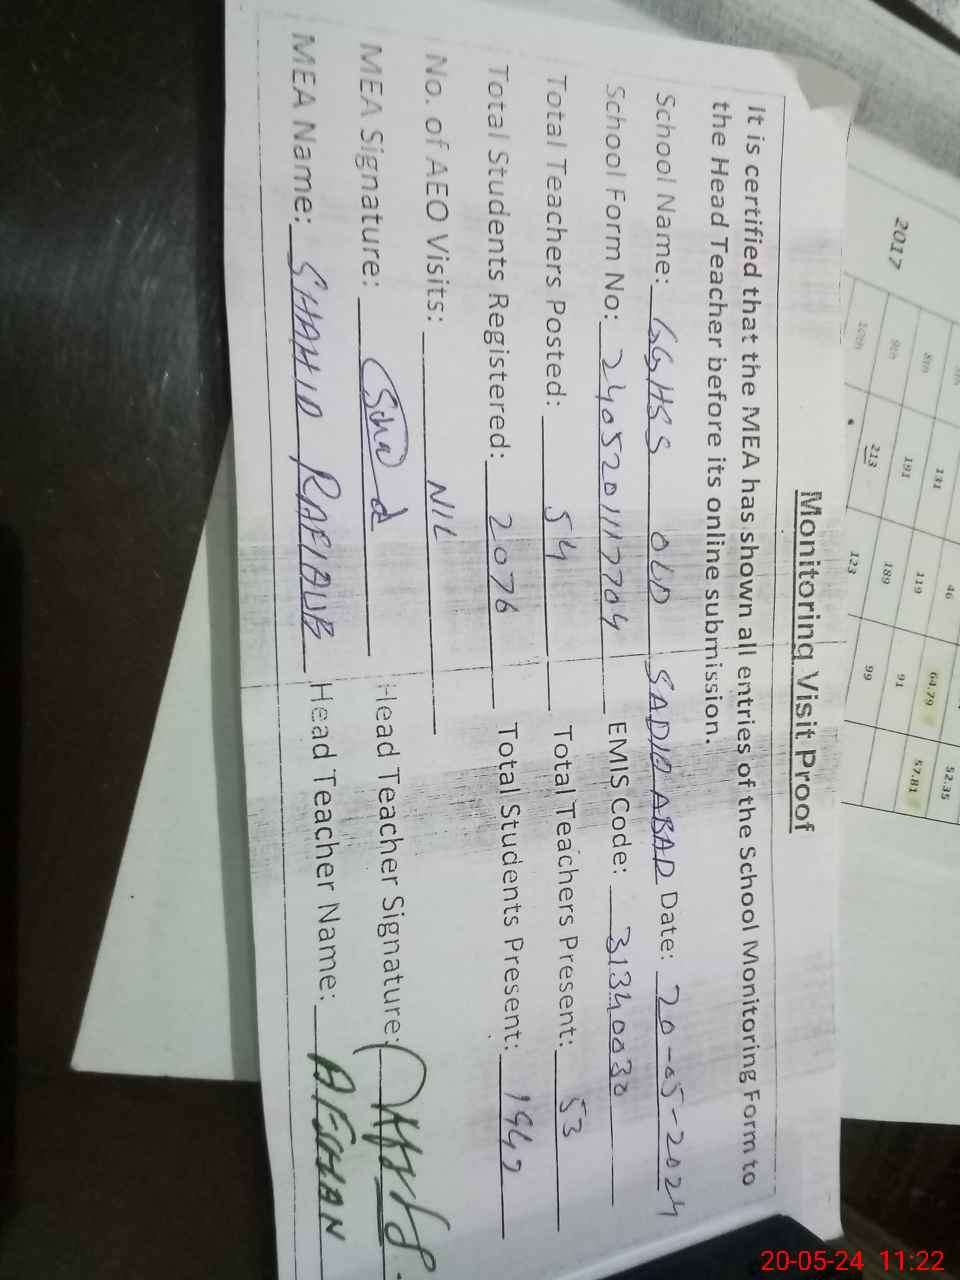 Monitoring Visit Proof
It is certified that the MEA has shown all entries of the School Monitoring Form to
the Head Teacher before its online submission.
School Name: GGHSS OLD SADIQ ABAD Date: 20-05-2024
School Form No: 2405201117704 EMIS Code: 31340030
Total Teachers Posted: 54 Total Teachers Present: 53
Total Students Registered: 2076 Total Students Present: 1942
No. of AEO Visits: NIL
MEA Signature: Head Teacher Signature:
MEA Name: SHAHID Head Teacher Name: AFSHAN
2017
8th 131 46 52.35
9th 191 119 64.79 57.81
10th 213 189 91
123 99
20-05-24 11:22